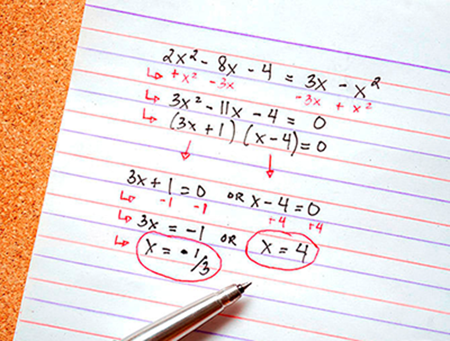 2x² - 8x - 4 = 3x - x²
↳ +x² -3x -3x + x²
↳ 3x² - 11x - 4 = 0
↳ (3x + 1) (x - 4) = 0
↓ ↓
3x + 1 = 0 OR x - 4 = 0
↳ -1 -1 +4 +4
↳ 3x = -1 OR x = 4
↳ x = -1/3